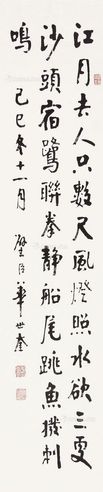 江月去人只數尺風燈照水欲三更
沙頭宿鷺聯拳静船尾跳魚撥刺
鳴 己巳冬十一月 璧臣華世奎